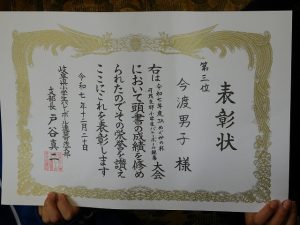 表彰状
第三位
今渡男子 様
右は
大会
において頭書の成績を修め
られたのでその栄誉を讃え
ここにこれを表彰します
令和七年十二月二十日
支部長 戸谷真二